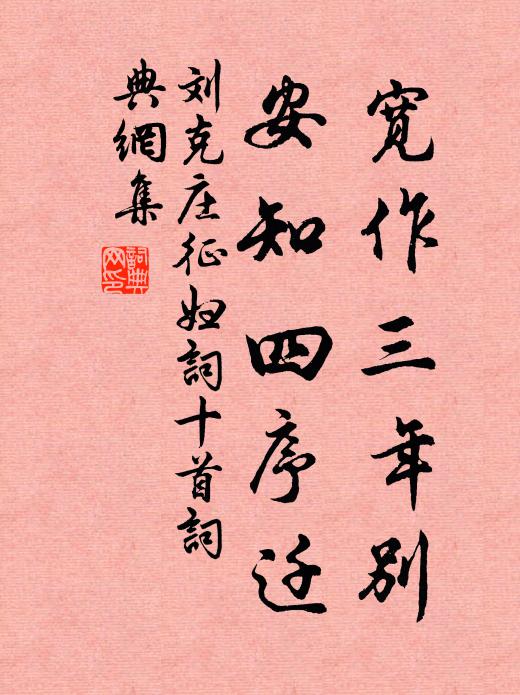 寬作三年别
安知四序迁
刘克庄征妇詞十首詞
典網集
詞典
网印